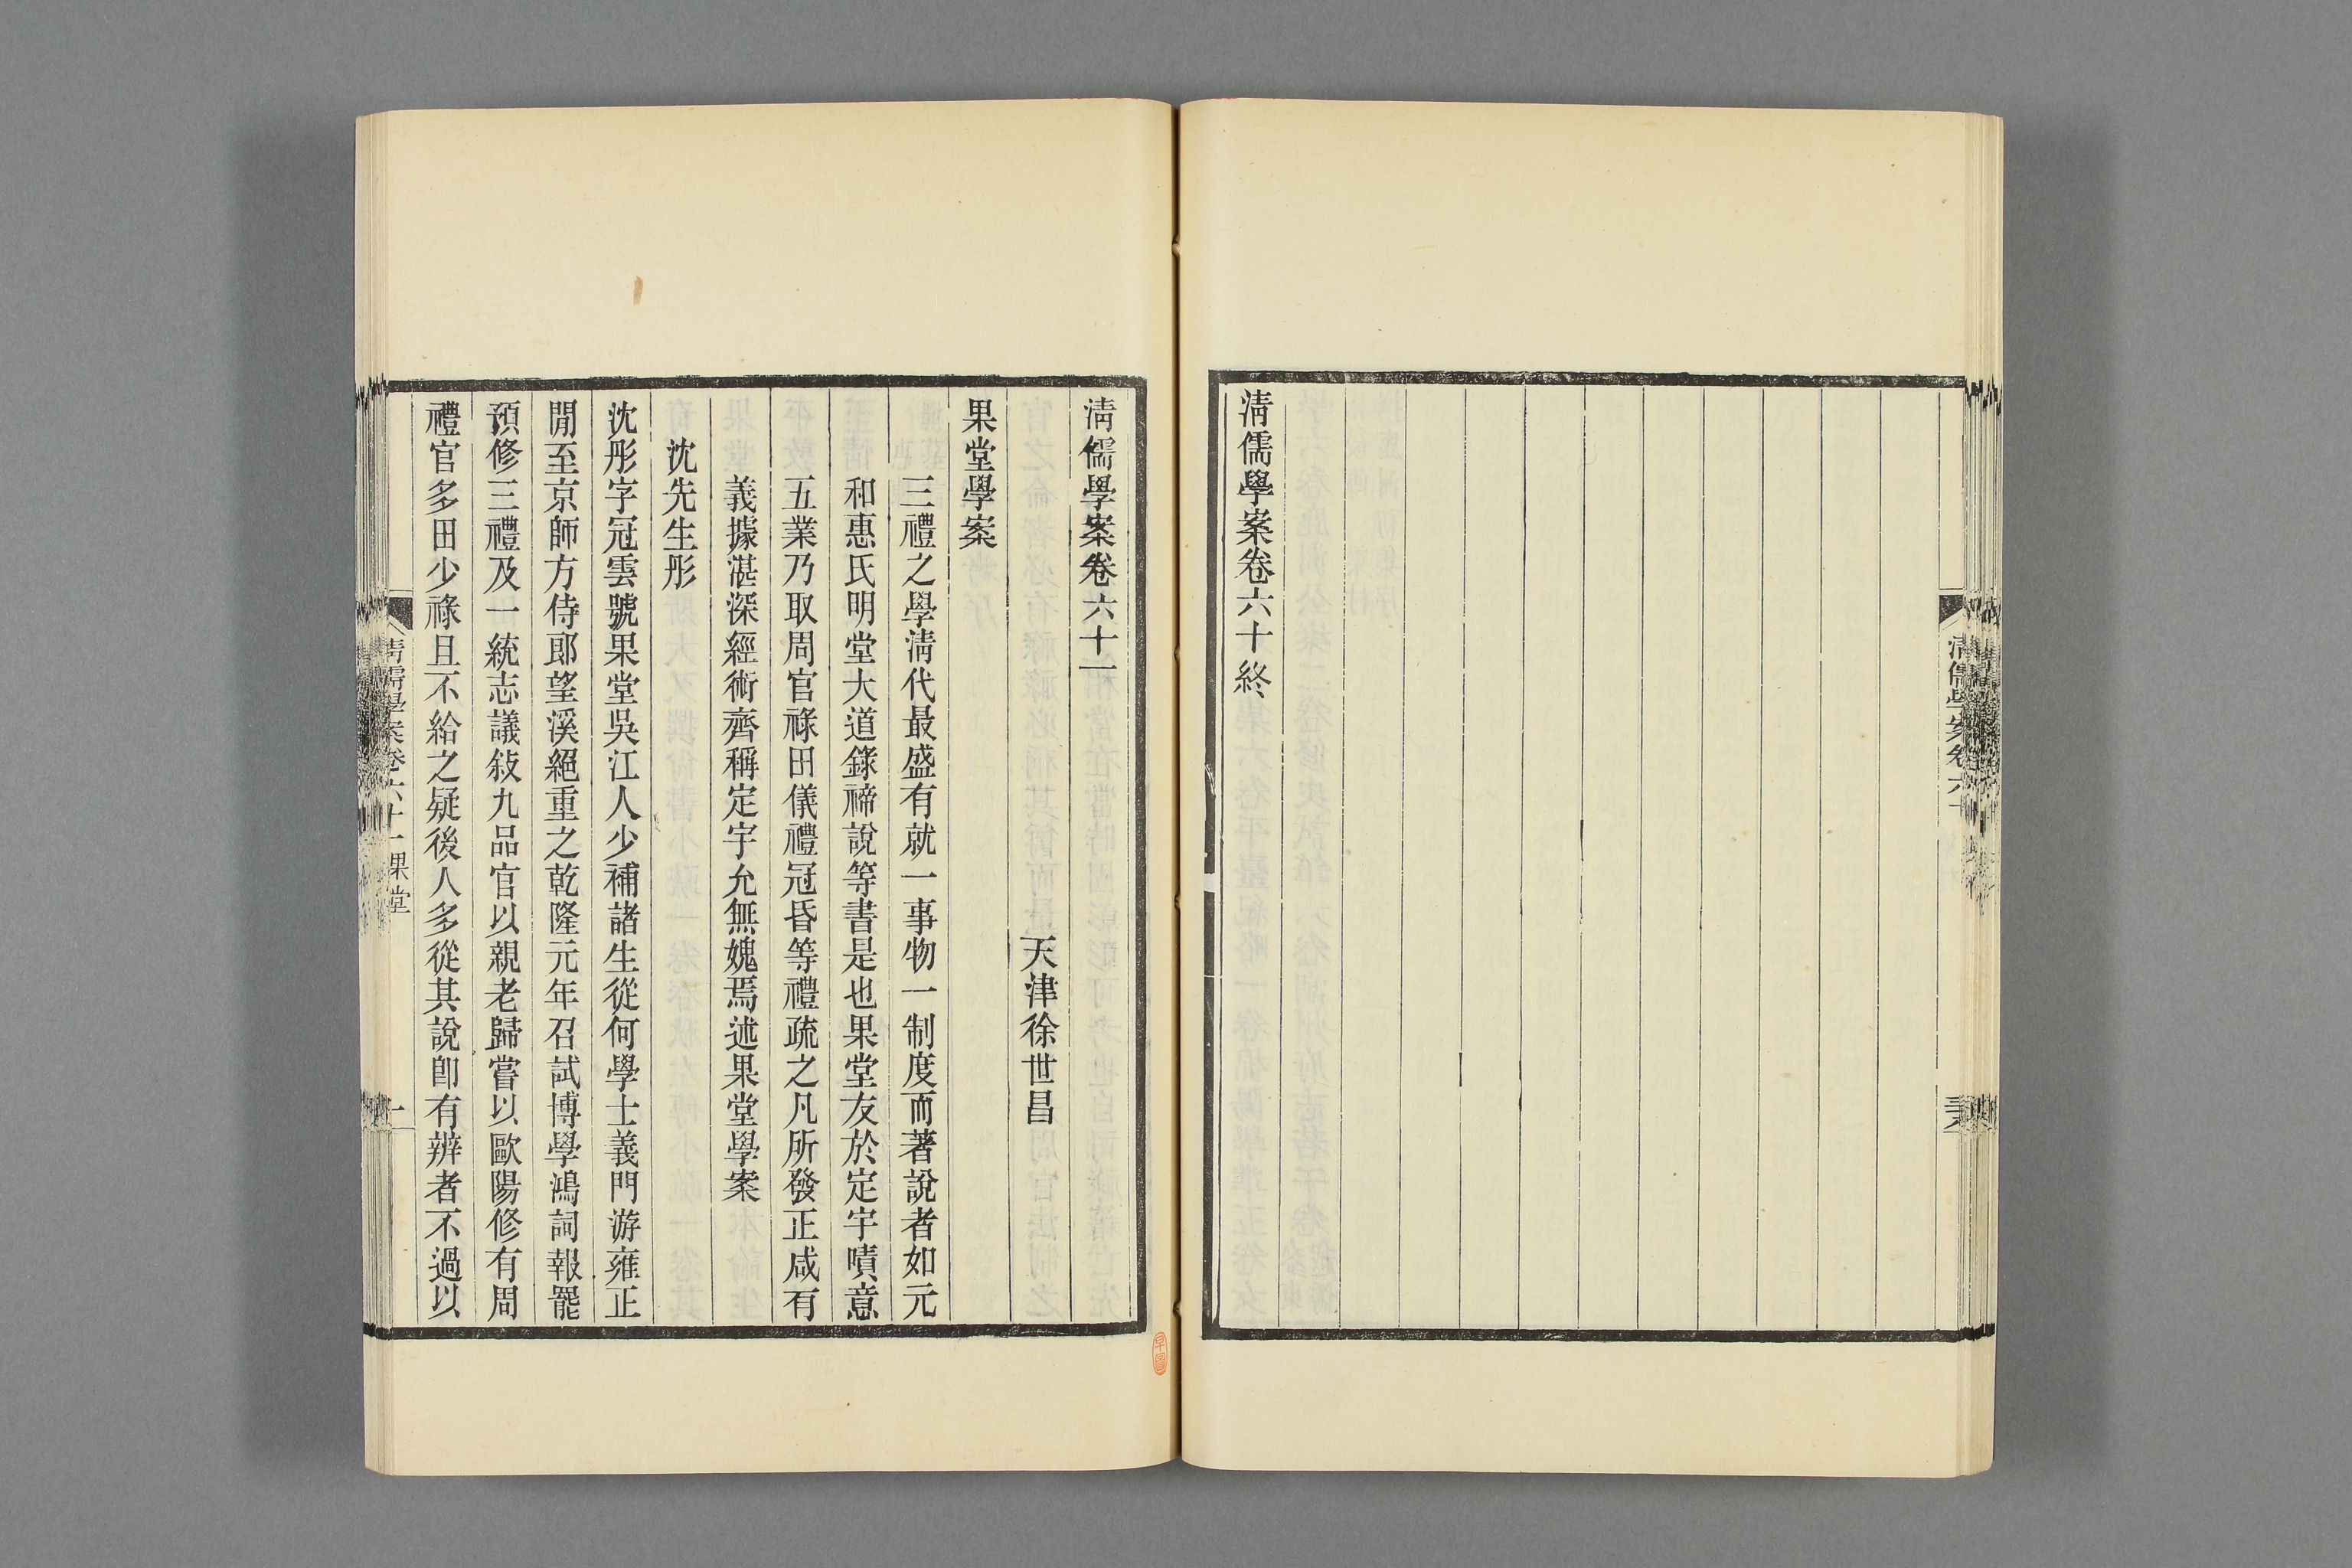 清儒學案卷六十終
清儒學案卷六十一
天津徐世昌
果堂學案
三禮之學清代最盛有就一事物一制度而著說者如元
和惠氏明堂大道錄禘說等書是也果堂友於定宇嘖意
五業乃取周官祿田儀禮冠昏等禮疏之凡所發正咸有
義據湛深經術齊稱定宇允無媿焉述果堂學案
沈先生彤
沈彤字冠雲號果堂吳江人少補諸生從何學士義門游雍正
閒至京師方侍郎望溪絕重之乾隆元年召試博學鴻詞報罷
預修三禮及一統志議敍九品官以親老歸嘗以歐陽修有周
禮官多田少祿且不給之疑後人多從其說卽有辨者不過以
清儒學案卷六十一 果堂 一